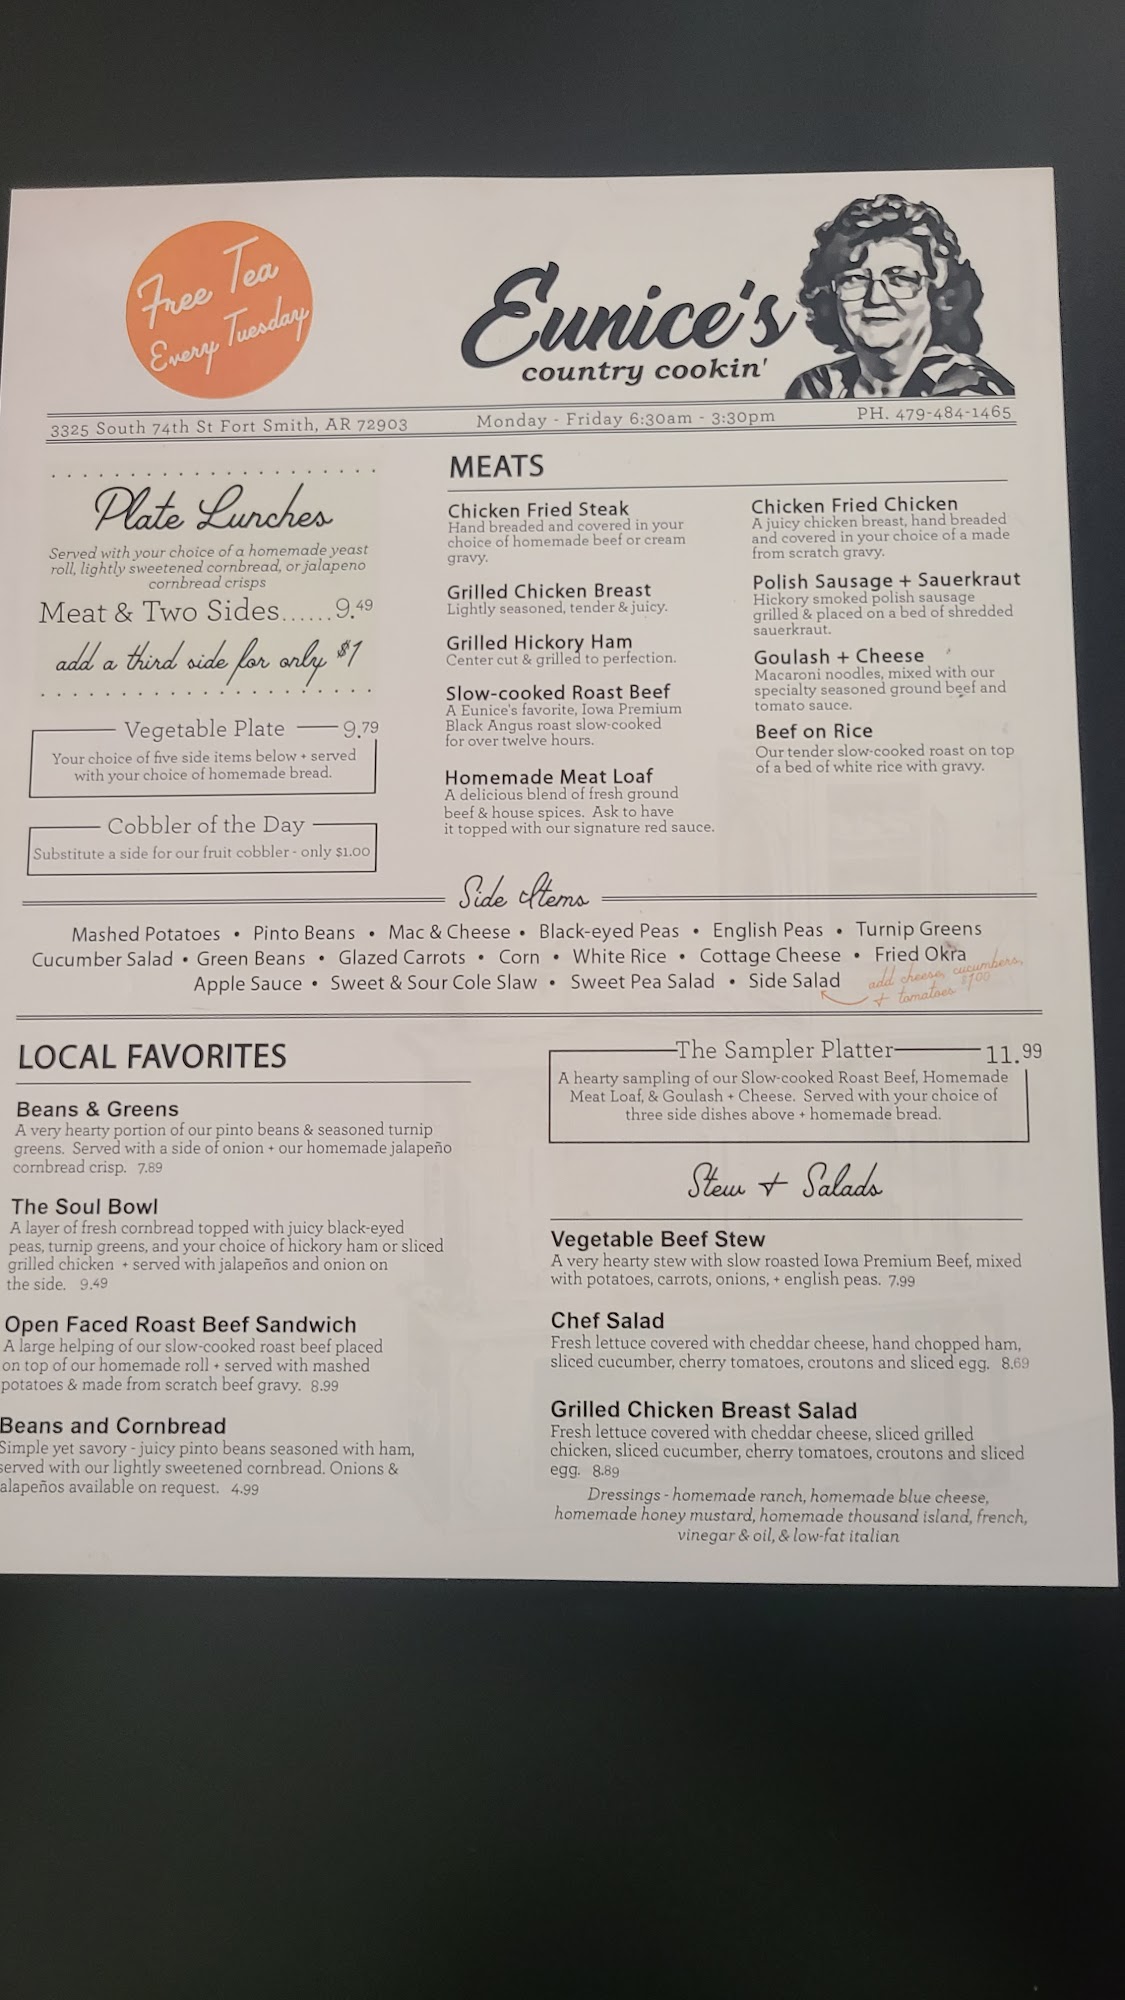 Free Tea
Every Tuesday
Eunice's
country cookin'
3325 South 74th St Fort Smith, AR 72903
Monday - Friday 6:30am - 3:30pm
PH. 479-484-1465
Plate Lunches
Served with your choice of a homemade yeast
roll, lightly sweetened cornbread, or jalapeno
cornbread crisps
Meat & Two Sides......9.49
add a third side for only $1
Vegetable Plate 9.79
Your choice of five side items below + served
with your choice of homemade bread.
Cobbler of the Day
Substitute a side for our fruit cobbler - only $1.00
MEATS
Chicken Fried Steak
Hand breaded and covered in your
choice of homemade beef or cream
gravy.
Grilled Chicken Breast
Lightly seasoned, tender & juicy.
Grilled Hickory Ham
Center cut & grilled to perfection.
Slow-cooked Roast Beef
A Eunice's favorite, Iowa Premium
Black Angus roast slow-cooked
for over twelve hours.
Homemade Meat Loaf
A delicious blend of fresh ground
beef & house spices. Ask to have
it topped with our signature red sauce.
Chicken Fried Chicken
A juicy chicken breast, hand breaded
and covered in your choice of a made
from scratch gravy.
Polish Sausage + Sauerkraut
Hickory smoked polish sausage
grilled & placed on a bed of shredded
sauerkraut.
Goulash + Cheese
Macaroni noodles, mixed with our
specialty seasoned ground beef and
tomato sauce.
Beef on Rice
Our tender slow-cooked roast on top
of a bed of white rice with gravy.
Side Items
Mashed Potatoes • Pinto Beans • Mac & Cheese • Black-eyed Peas • English Peas • Turnip Greens
Cucumber Salad • Green Beans • Glazed Carrots • Corn • White Rice • Cottage Cheese • Fried Okra
Apple Sauce • Sweet & Sour Cole Slaw • Sweet Pea Salad • Side Salad
add cheese, cucumbers,
+ tomatoes $1.00
LOCAL FAVORITES
Beans & Greens
A very hearty portion of our pinto beans & seasoned turnip
greens. Served with a side of onion + our homemade jalapeño
cornbread crisp. 7.89
The Soul Bowl
A layer of fresh cornbread topped with juicy black-eyed
peas, turnip greens, and your choice of hickory ham or sliced
grilled chicken + served with jalapeños and onion on
the side. 9.49
Open Faced Roast Beef Sandwich
A large helping of our slow-cooked roast beef placed
on top of our homemade roll + served with mashed
potatoes & made from scratch beef gravy. 8.99
Beans and Cornbread
Simple yet savory - juicy pinto beans seasoned with ham,
served with our lightly sweetened cornbread. Onions &
alapeños available on request. 4.99
The Sampler Platter 11.99
A hearty sampling of our Slow-cooked Roast Beef, Homemade
Meat Loaf, & Goulash + Cheese. Served with your choice of
three side dishes above + homemade bread.
Stew + Salads
Vegetable Beef Stew
A very hearty stew with slow roasted Iowa Premium Beef, mixed
with potatoes, carrots, onions, + english peas. 7.99
Chef Salad
Fresh lettuce covered with cheddar cheese, hand chopped ham,
sliced cucumber, cherry tomatoes, croutons and sliced egg. 8.69
Grilled Chicken Breast Salad
Fresh lettuce covered with cheddar cheese, sliced grilled
chicken, sliced cucumber, cherry tomatoes, croutons and sliced
egg. 8.89
Dressings - homemade ranch, homemade blue cheese,
homemade honey mustard, homemade thousand island, french,
vinegar & oil, & low-fat italian